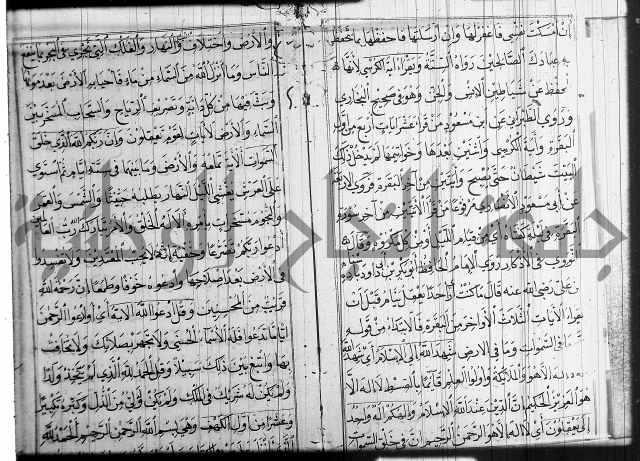 ان امسكت نفسي فاغفر لها وان ارسلتها فاحفظها بما تحفظ
به عبادك الصالحين رواه الستة ويقرأ اية الكرسي لانها
تحفظ عن شياطين الانس والجن وهو في صحيح البخاري
وروى الطبراني عن ابن مسعود من قرأ عشر ايات اربع من اول
البقرة واية الكرسي وايتين بعدها وخواتيمها لم يدخل ذلك
البيت شيطان حتى يصبح وايتين من آخر البقرة فروى
عن ابي مسعود الانصاري مرفوعا من قرأ الآيتين من آخر سورة
البقرة في ليلة كفتاه اي من قيام الليل او من كل مكروه وقال
النووي في الاذكار روى الامام الحافظ ابو بكر بن ابي داود باسناده
عن علي رضي الله عنه قال ما كنت ارى احدا يعقل ينام قبل ان
يقرأ الآيات الثلاث الاواخر من البقرة فالابتداء من قوله
ما في السموات وما في الارض شهد الله الى الاسلام اي شهد الله
انه لا اله الا هو والملائكة واولوا العلم قائما بالقسط لا اله الا
هو العزيز الحكيم ان الدين عند الله الاسلام والهكم اله واحد
الى يعقلون اي لا اله الا هو الرحمن الرحيم ان في خلق السموات
والارض واختلاف الليل والنهار والفلك التي تجري في البحر بما ينفع
الناس وما انزل الله من السماء من ماء فاحيا به الارض بعد موتها
وبث فيها من كل دابة وتصريف الرياح والسحاب المسخر بين
السماء والارض لآيات لقوم يعقلون وان ربكم الله الذي خلق
السموات والارض وما بينهما في ستة ايام ثم استوى
على العرش يغشي الليل النهار يطلبه حثيثا والشمس والقمر
والنجوم مسخرات بامره الا له الخلق والامر تبارك الله رب العالمين
ادعوا ربكم تضرعا وخفية انه لا يحب المعتدين ولا تفسدوا
في الارض بعد اصلاحها وادعوه خوفا وطمعا ان رحمة الله
قريب من المحسنين وقل ادعوا الله الاية اي او ادعوا الرحمن
ايا ما تدعوا فله الاسماء الحسنى ولا تجهر بصلاتك ولا تخافت
بها وابتغ بين ذلك سبيلا وقل الحمد لله الذي لم يتخذ ولدا
ولم يكن له شريك في الملك ولم يكن له ولي من الذل وكبره تكبيرا
وعشرا من اول الكهف وهي بسم الله الرحمن الرحيم الحمد لله
جامعة النجاح الوطنية